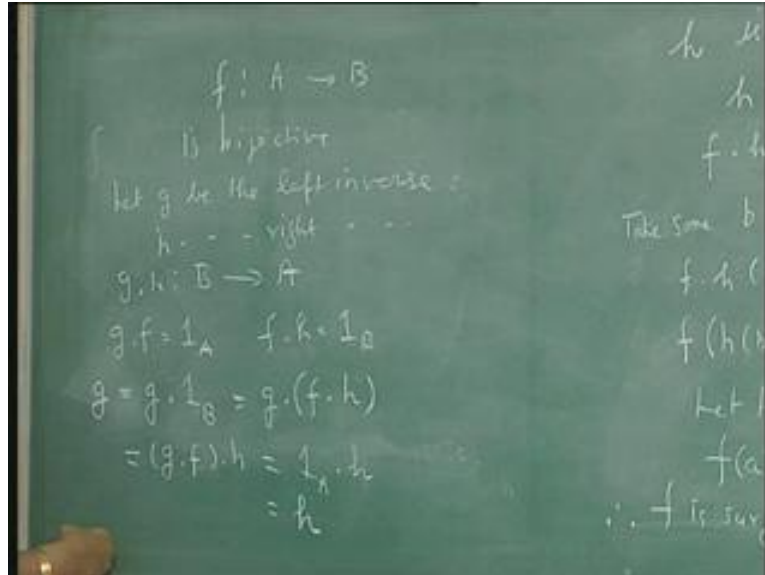 f : A → B
is bijective
Let g be the left inverse :
h - - - right - - -
g, h : B → A
g.f = 1_A f.h = 1_B
g = g.1_B = g.(f.h)
= (g.f).h = 1_A.h
= h
h is
h
f.h
Take some b
f.h (
f(h(
Let
f(a
∴ f is sur